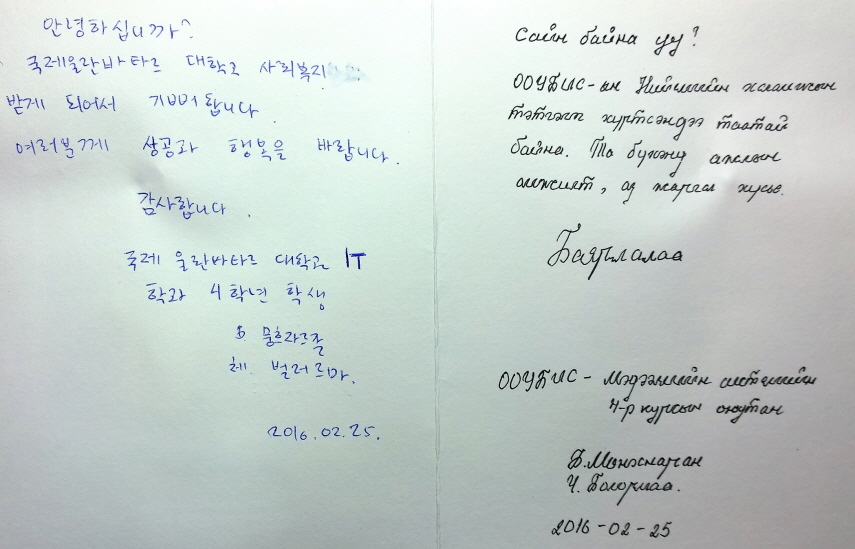 안녕하십니까?
국제울란바타르 대학교 사회복지
받게 되어서 기쁘합니다.
여러분께 성공과 행복을 바랍니다.
감사합니다.
국제 울란바타르 대학교 IT
학과 4학년 학생
뭉흐자르갈
체. 벌러르마.
2016.02.25.
Сайн байна уу?
ООУБИС-ын Нийгмийн халамжын
тэтгэлэг хүртсэндээ таатай
байна. Та бүхэнд ажлын
амжилт, аз жаргал хүсье.
Баярлалаа
ООУБИС - Мэдээллийн системийн
4-р курсын оюутан
Б.Мөнхжаргал
Ч. Болормаа.
2016-02-25